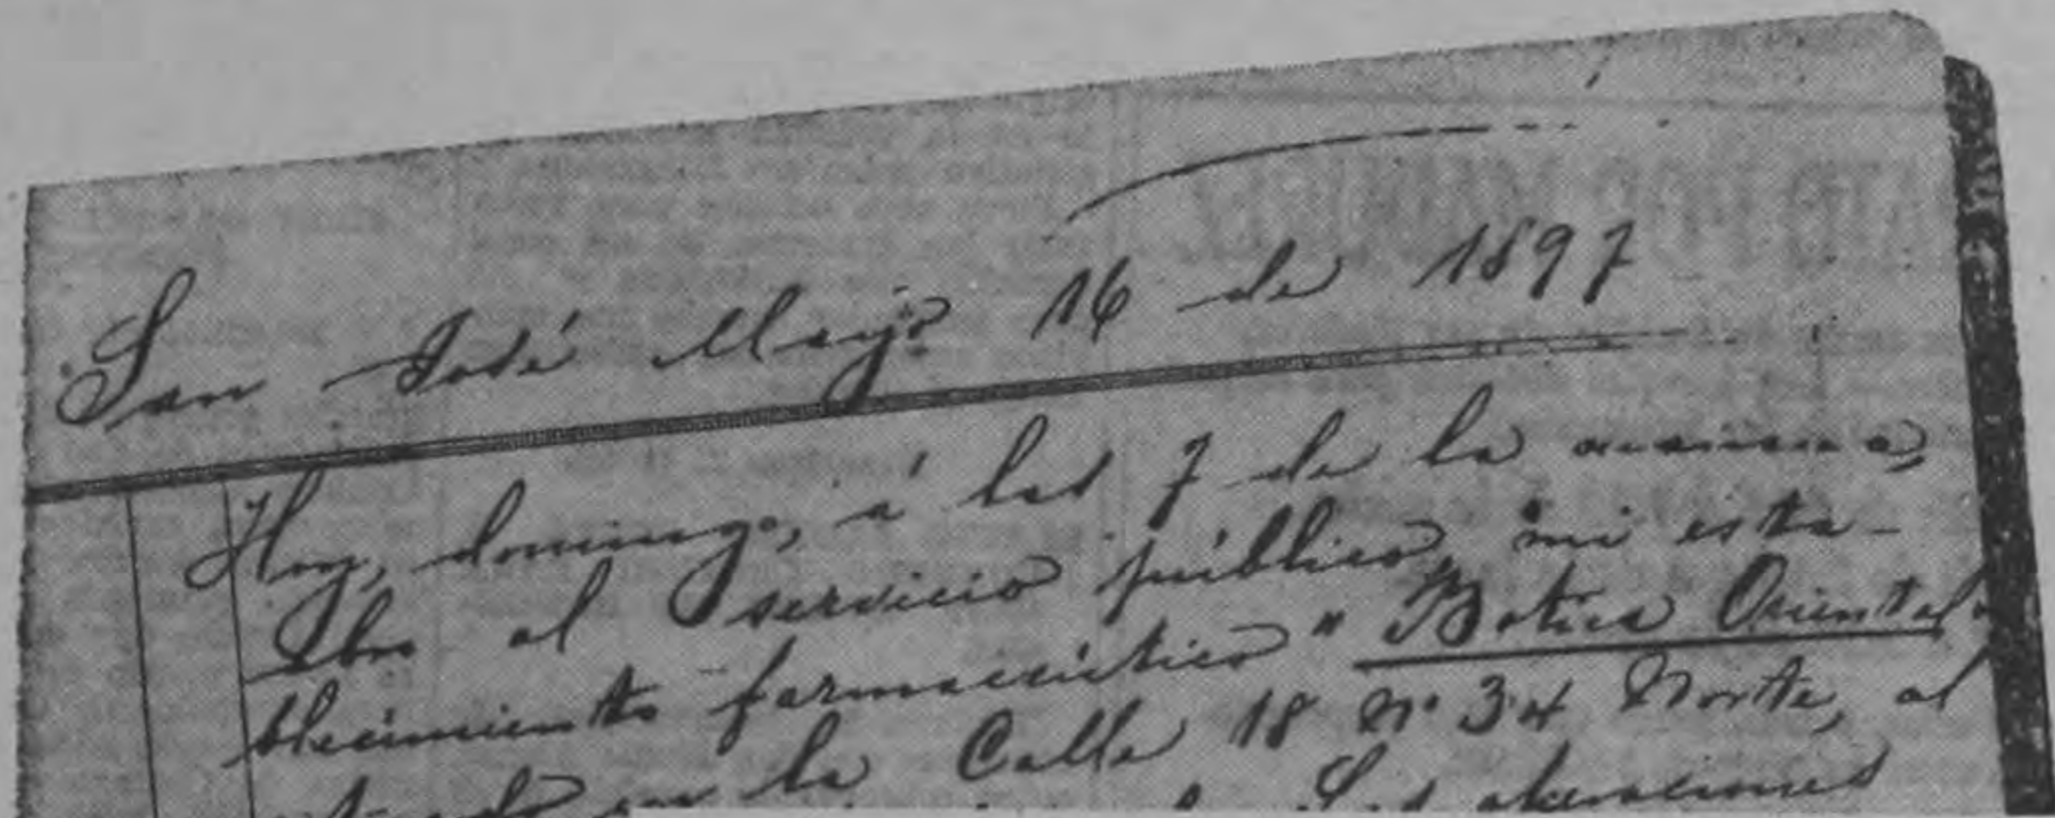 San José Mayo 16 de 1897
Hoy, domingo, á las 7 de la mañana,
abro al servicio público, mi esta-
blecimiento farmacéutico "Botica Oriental"
en la Calle 18 Nº 34 Norte, al